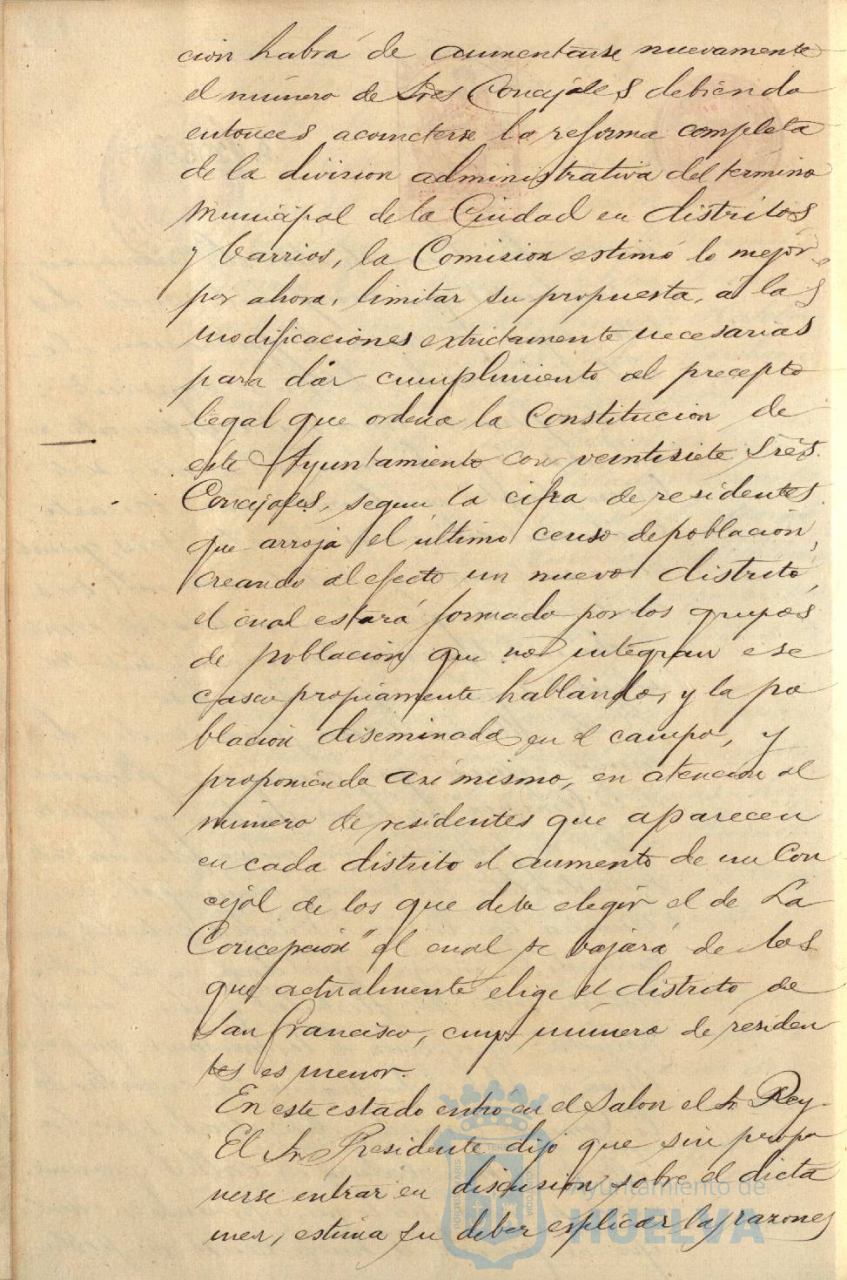 cion habrá de aumentarse nuevamente
el número de Sres Concejales debiendo
entonces acometerse la reforma completa
de la division administrativa del termino
municipal de la Ciudad en distritos
y barrios, la Comision estimó lo mejor
por ahora, limitar su propuesta, á las
modificaciones extrictamente necesarias
para dar cumplimiento al precepto
legal que ordena la Constitucion de
este Ayuntamiento con veintisiete Sres.
Concejales, segun la cifra de residentes
que arroja el último censo de poblacion,
creando al efecto un nuevo distrito,
el cual estará formado por los grupos
de poblacion que no integran ese
casco propiamente hablando, y la po
blacion diseminada en el campo, y
proponiendo asi mismo, en atencion al
número de residentes que aparecen
en cada distrito el aumento de un Con
cejal de los que debe elegir el de La
Concepción" el cual se bajará de los
que actualmente elige el distrito de
San Francisco, cuyo número de residen
tes es menor.
En este estado entró en el Salon el Sr Rey.
El Sr Presidente dijo que sin propo
nerse entrar en discusion sobre el dicta
men, estima su deber esplicar las razones
Ayuntamiento de
HUELVA